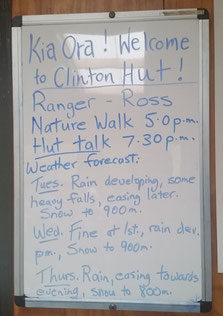 Kia Ora! Welcome
to Clinton Hut!
Ranger - Ross
Nature Walk 5.0p.m.
Hut talk 7.30p.m.
Weather forecast:
Tues. Rain developing, some
heavy falls, easing later.
Snow to 900m.
Wed. Fine at 1st., rain dev.
pm., Snow to 900m.
Thurs. Rain, easing towards
evening, snow to 800m.